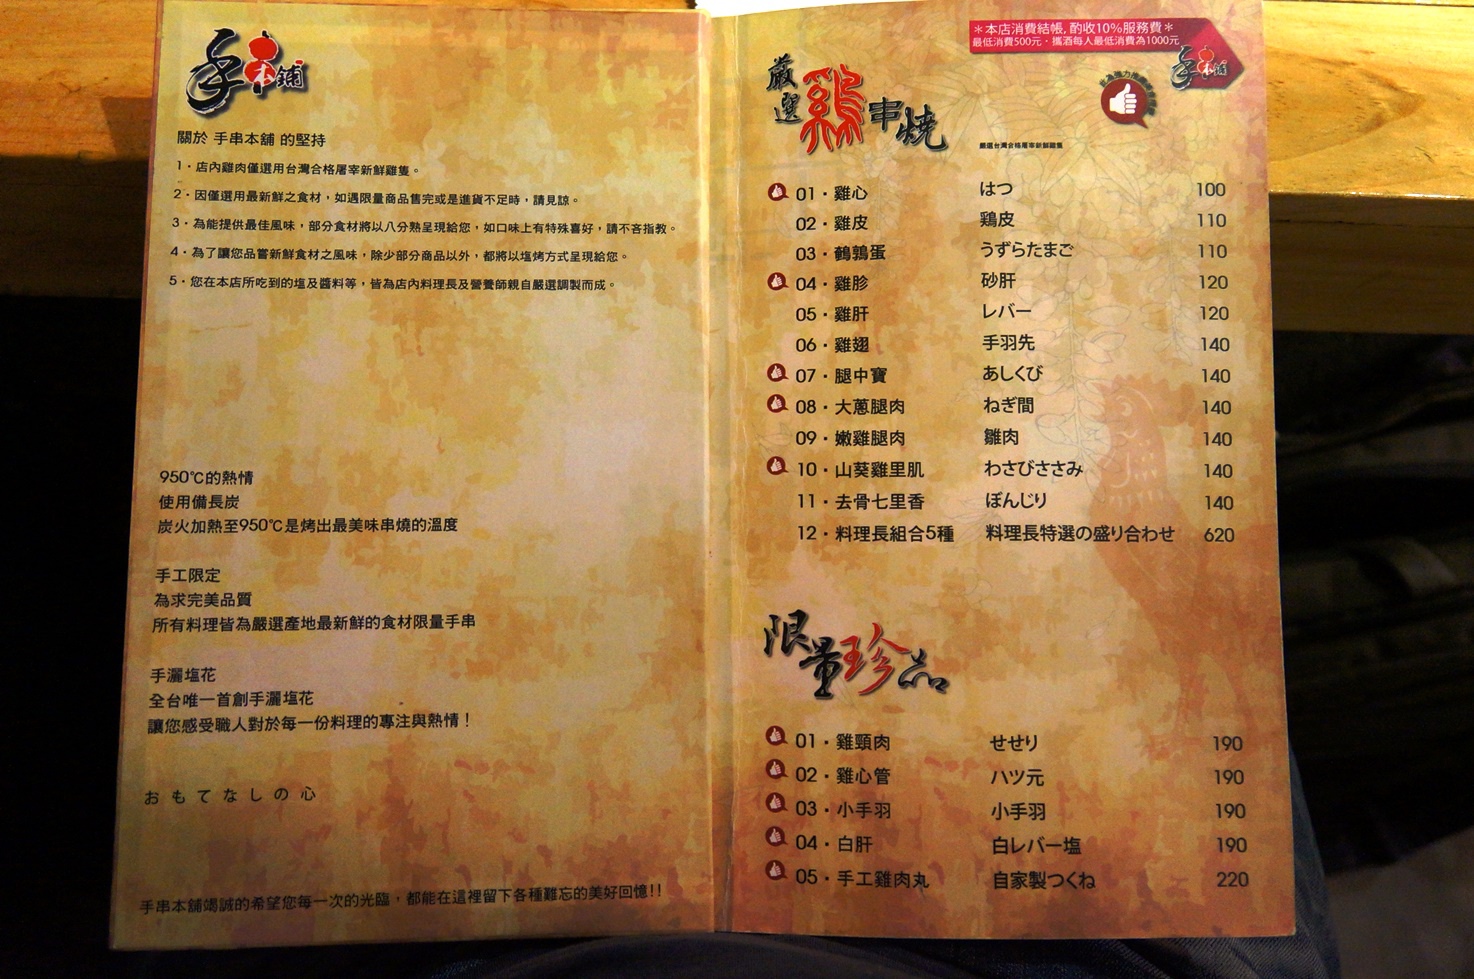 手串本舖
關於 手串本舖 的堅持
1・店內雞肉僅選用台灣合格屠宰新鮮雞隻。
2・因僅選用最新鮮之食材，如遇限量商品售完或是進貨不足時，請見諒。
3・為能提供最佳風味，部分食材將以八分熟呈現給您，如口味上有特殊喜好，請不吝指教。
4・為了讓您品嘗新鮮食材之風味，除少部分商品以外，都將以塩烤方式呈現給您。
5・您在本店所吃到的塩及醬料等，皆為店內料理長及營養師親自嚴選調製而成。
950℃的熱情
使用備長炭
炭火加熱至950℃是烤出最美味串燒的溫度
手工限定
為求完美品質
所有料理皆為嚴選產地最新鮮的食材限量手串
手灑塩花
全台唯一首創手灑塩花
讓您感受職人對於每一份料理的專注與熱情！
おもてなしの心
手串本舖竭誠的希望您每一次的光臨，都能在這裡留下各種難忘的美好回憶!!
＊本店消費結帳, 酌收10%服務費＊
最低消費500元・攜酒每人最低消費為1000元
手串本舖
嚴選雞串燒
嚴選台灣合格屠宰新鮮雞隻
01・雞心 はつ 100
02・雞皮 鶏皮 110
03・鵪鶉蛋 うずらたまご 110
04・雞胗 砂肝 120
05・雞肝 レバー 120
06・雞翅 手羽先 140
07・腿中寶 あしくび 140
08・大蔥腿肉 ねぎ間 140
09・嫩雞腿肉 雛肉 140
10・山葵雞里肌 わさびささみ 140
11・去骨七里香 ぼんじり 140
12・料理長組合5種 料理長特選の盛り合わせ 620
限量珍品
01・雞頸肉 せせり 190
02・雞心管 ハツ元 190
03・小手羽 小手羽 190
04・白肝 白レバー塩 190
05・手工雞肉丸 自家製つくね 220